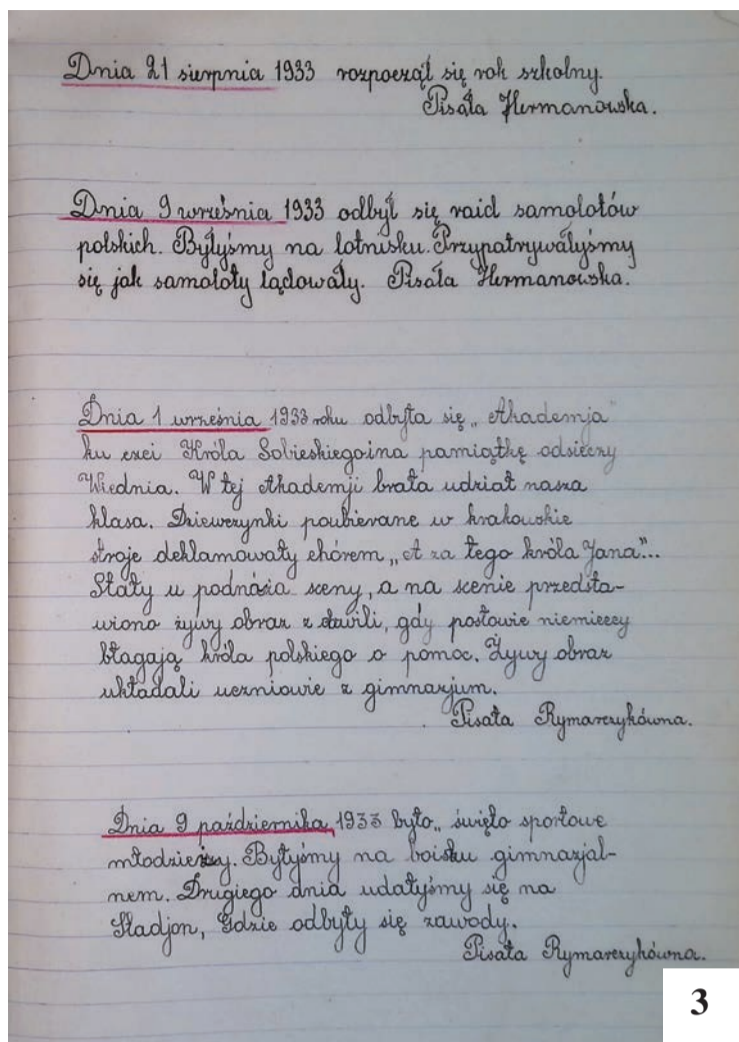 Dnia 21 sierpnia 1933 rozpoczął się rok szkolny.
Pisała Hermanowska.
Dnia 9 września 1933 odbył się raid samolotów
polskich. Byłyśmy na lotnisku. Przypatrywałyśmy
się jak samoloty lądowały. Pisała Hermanowska.
Dnia 1 września 1933 roku odbyła się „Akademja"
ku czci Króla Sobieskiego i na pamiątkę odsieczy
Wiednia. W tej Akademji brała udział nasza
klasa. Dziewczynki poubierane w krakowskie
stroje deklamowały chórem „A za tego króla Jana"...
Stały u podnóża sceny, a na scenie przedsta-
wiono żywy obraz z chwili, gdy posłowie niemieccy
błagają króla polskiego o pomoc. Żywy obraz
układali uczniowie z gimnazjum.
Pisała Rymarczykówna.
Dnia 9 października 1933 było „ święto sportowe
młodzieży. Byłyśmy na boisku gimnazjal-
nem. Drugiego dnia udałyśmy się na
Stadjon, Gdzie odbyły się zawody.
Pisała Rymarczykówna.
3